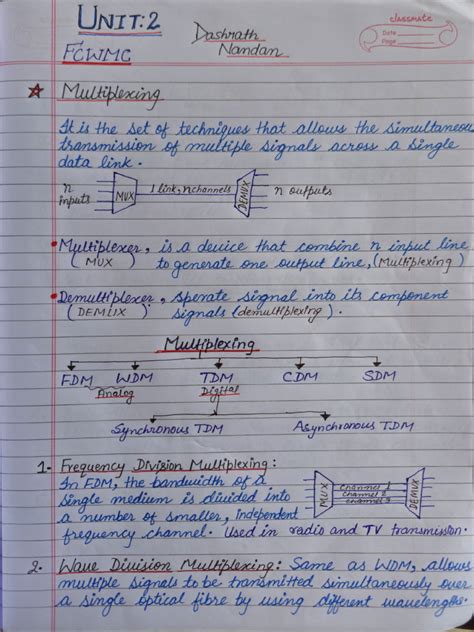 UNIT:2
FCWMC
Dashrath
Nandan
classmate
Date
Page
Multiplexing
It is the set of techniques that allows the simultaneous
transmission of multiple signals across a single
data link.
n
inputs
MUX
1 link, n channels
DEMUX
n outputs
Multiplexer, is a device that combine n input line
(MUX) to generate one output line, (Multiplexing)
Demultiplexer, sperate signal into its component
(DEMUX) signals (demultiplexing).
Multiplexing
FDM WDM TDM CDM SDM
Analog Digital
Synchronous TDM Asynchronous TDM
1. Frequency Division Multiplexing:
In FDM, the bandwidth of a
single medium is divided into
a number of smaller, independent
frequency channel. Used in radio and TV transmission.
MUX
Channel 1
Channel 2
Channel 3
DEMUX
2. Wave Division Multiplexing: Same as WDM, allows
multiple signals to be transmitted simultaneously over
a single optical fibre by using different wavelengths.